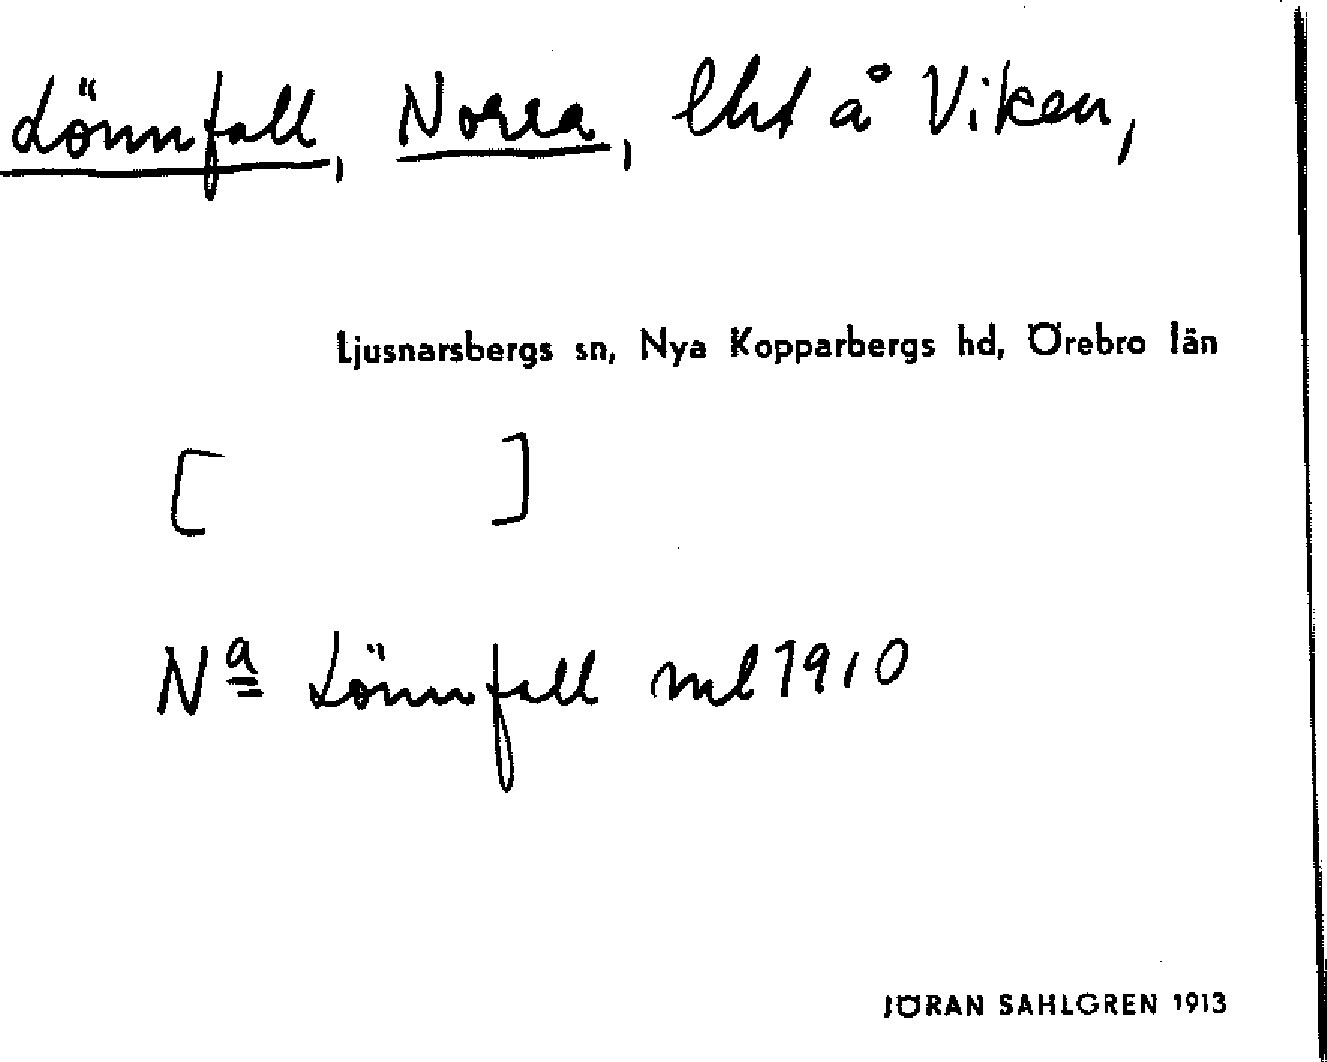 Lönnfall, Norra, lht å Viken,
Ljusnarsbergs sn, Nya Kopparbergs hd, Örebro län
[ ]
Na Lönnfall ml 1910
JÖRAN SAHLGREN 1913